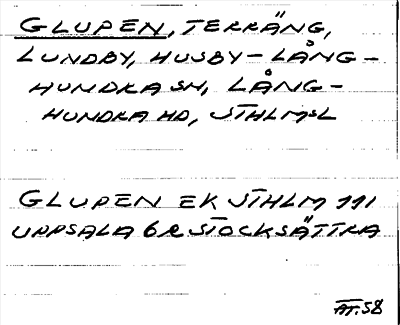 GLUPEN, TERRÄNG,
LUNDBY, HUSBY-LÅNG-
HUNDRA SN, LÅNG-
HUNDRA HD, STHLMSL
GLUPEN EK STHLM 111
UPPSALA 6R STOCKSÄTTRA
AT.58